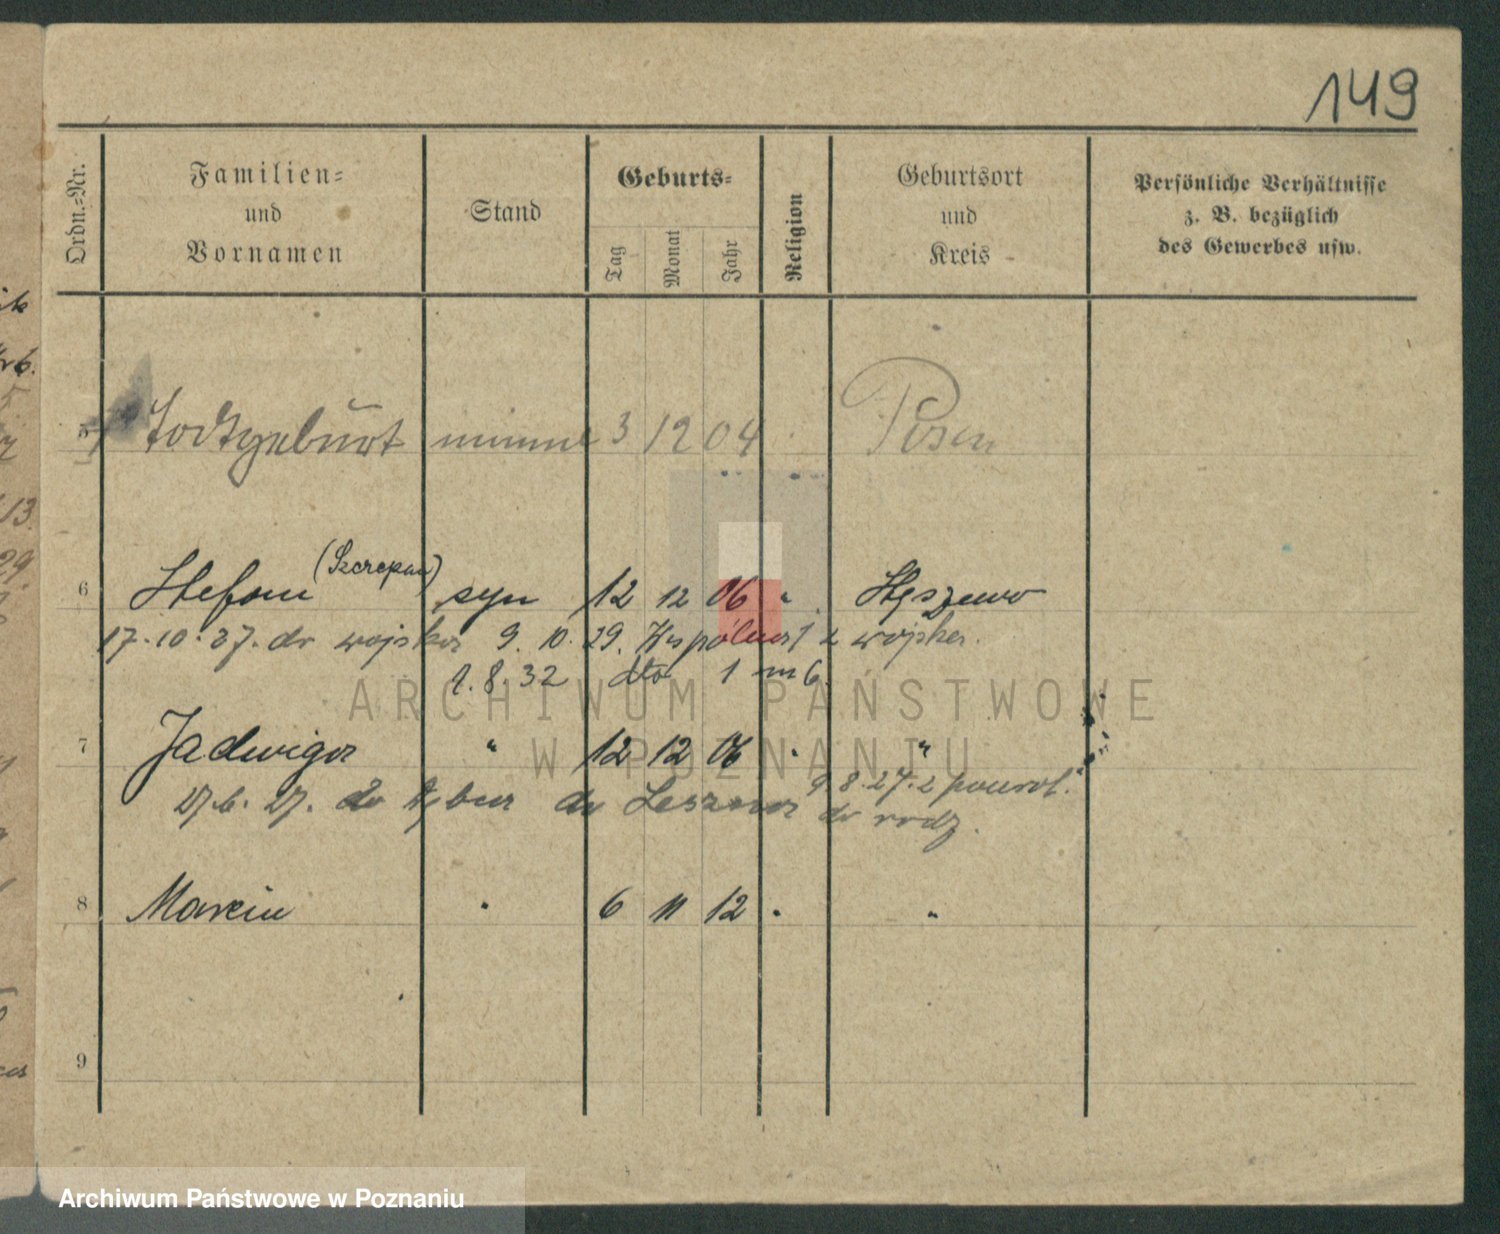 149
Ordn.=Nr.
Familien=
und
Vornamen
Stand
Geburts=
Tag
Monat
Jahr
Religion
Geburtsort
und
Kreis
Persönliche Verhältnisse
z. B. bezüglich
des Gewerbes usw.
5 Todtgeburt 3 12 04 Posen
6 Stefan (Szczepan) syn 12 12 06 " Stęszewo
17.10.27. do wojska 9. 10. 29. z wojska.
8. 32 dto 1 m 6.
7 Jadwiga " 12 12 06 " "
27.6. 27. do do Leszna 9.8.27. z powrot.
do rodz.
8 Marcin " 6 11 12 " "
9
ARCHIWUM PAŃSTWOWE
W POZNANIU
Archiwum Państwowe w Poznaniu